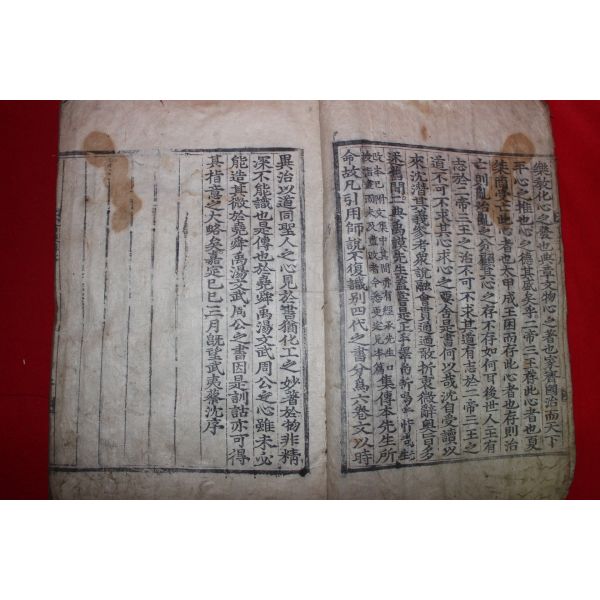 樂敎化心之發也典章文物心之著也家齊國治而天下
平心之推也心之德其盛矣乎二帝三王存此心者也夏
桀商受亡此心者也太甲成王困而存此心者也存則治
亡則亂治亂之分顧其心之存不存如何耳後世人主有
志於二帝三王之治不可不求其道有志於二帝三王之
道不可不求其心求心之要舍是書何以哉沈自受讀以
來沈潛其義參考衆說融會貫通迺敢折衷微辭奧旨多
述舊聞二典禹謨先生蓋嘗是正手澤尙新嗚呼惜哉先生
改本已附文集中其間亦有經承先生口
授指畫而未及盡改者今悉更定見本篇
集傳本先生所
命故凡引用師說不復識別四代之書分爲六卷文以時
異治以道同聖人之心見於書猶化工之妙著於物非精
深不能識也是傳也於堯舜禹湯文武周公之心雖未必
能造其微於堯舜禹湯文武周公之書因是訓詁亦可得
其指意之大略矣嘉定己巳三月旣望武夷蔡沈序